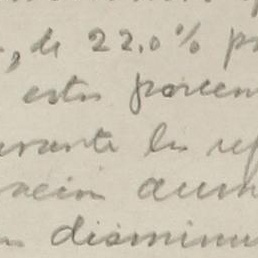 , de 22.0% p
estos porcen
urante la re
ción aum
n disminu